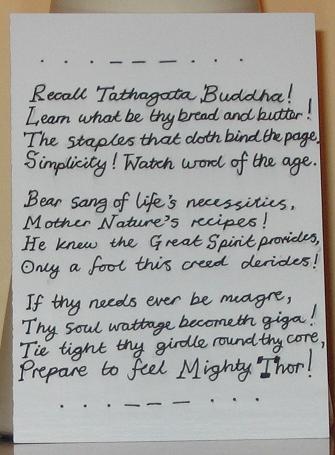 . . . — — — . . .
Recall Tathagata Buddha!
Learn what be thy bread and butter!
The staples that doth bind the page,
Simplicity! Watch word of the age.
Bear sang of life's necessities,
Mother Nature's recipes!
He knew the Great Spirit provides,
Only a fool this creed derides!
If thy needs ever be meagre,
Thy soul wattage becometh giga!
Tie tight thy girdle round thy core,
Prepare to feel Mighty Thor!
. . . — — — . . .